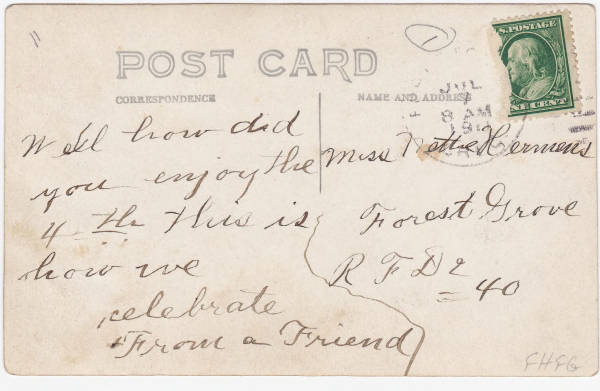 POST CARD
CORRESPONDENCE
NAME AND ADDRESS
U.S. POSTAGE
ONE CENT
JUL
7
8 AM
1912
1
Well how did
you enjoy the
4 th This is
how we
celebrate
From a Friend
Miss Nettie Hermens
Forest Grove
R F D 2
= 40
FHFG